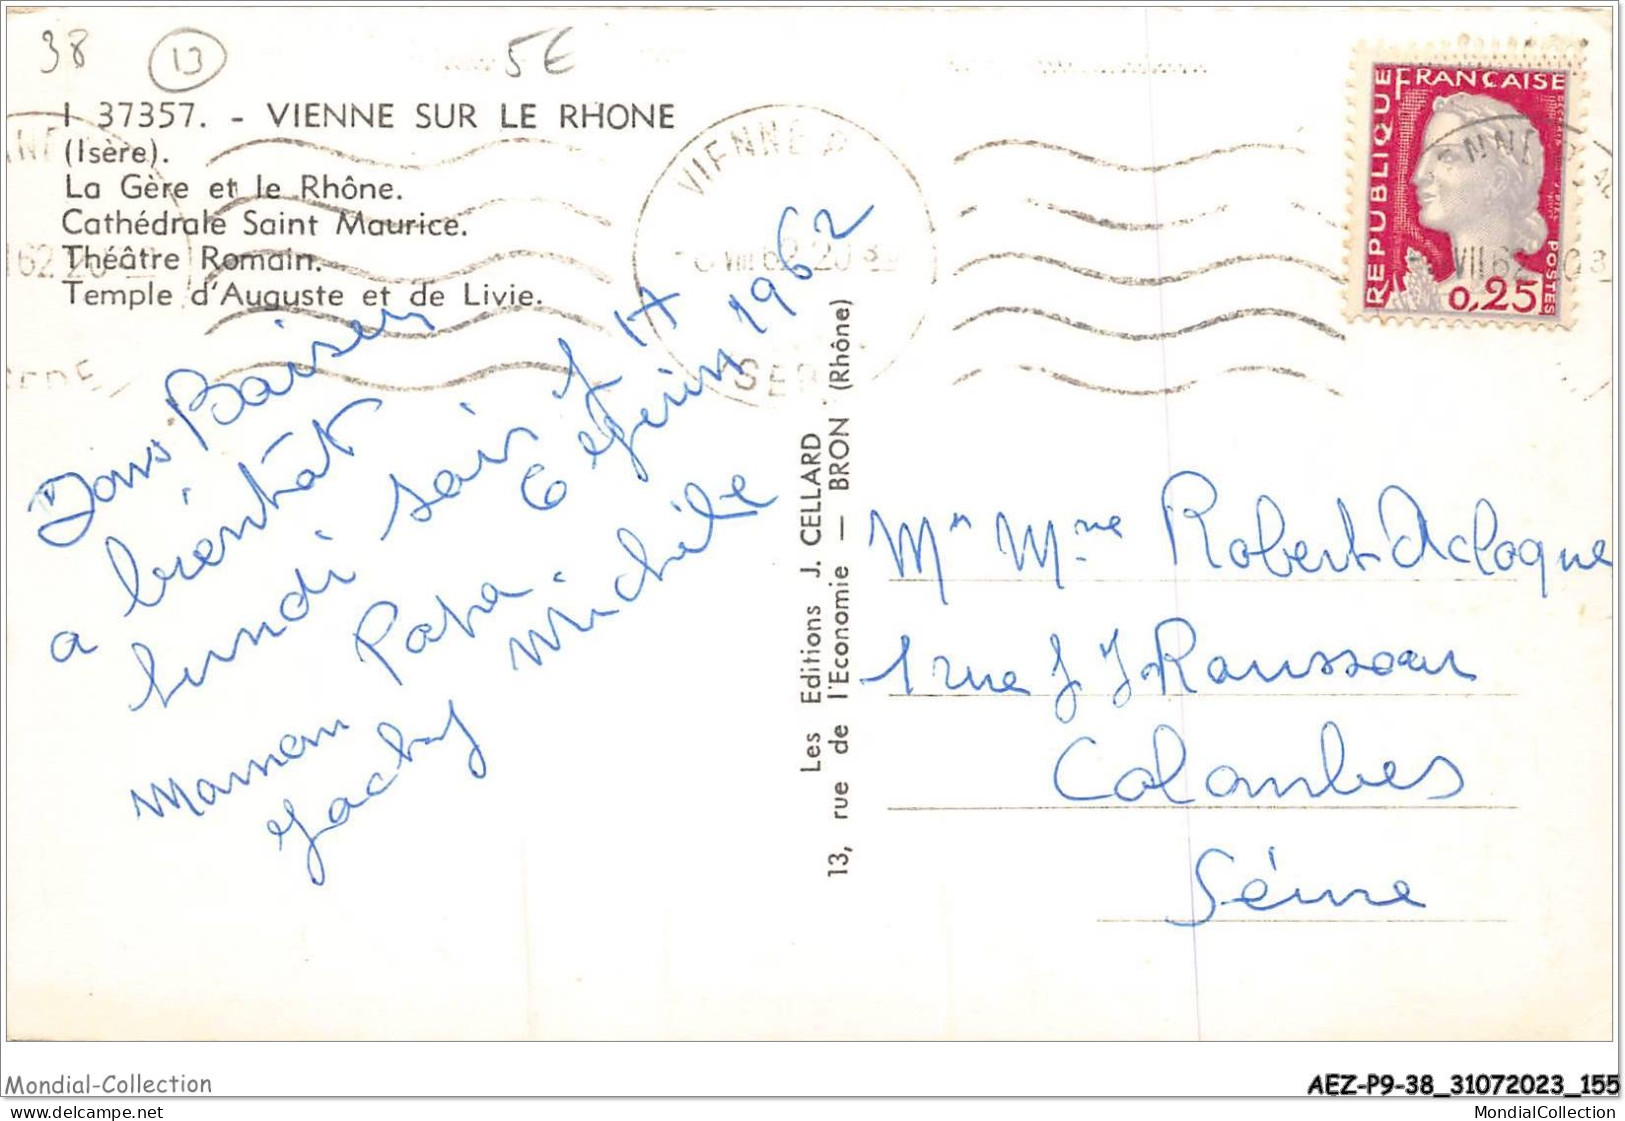 38
13
5€
I 37357. - VIENNE SUR LE RHONE
(Isère).
La Gère et le Rhône.
Cathédrale Saint Maurice.
Théâtre Romain.
Temple d'Auguste et de Livie.
Bons Baisers
a bientôt
lundi soir
6 1962
Maman Papa
Jacky Michèle
VIENNE
VIII 62
Les Editions J. CELLARD
13, rue de l'Economie — BRON (Rhône)
REPUBLIQUE FRANÇAISE
POSTES
0,25
Mr Mme Robert Acloque
1 rue J J Rousseau
Colombes
Seine
Mondial-Collection
AEZ-P9-38_31072023_155
www.delcampe.net
MondialCollection